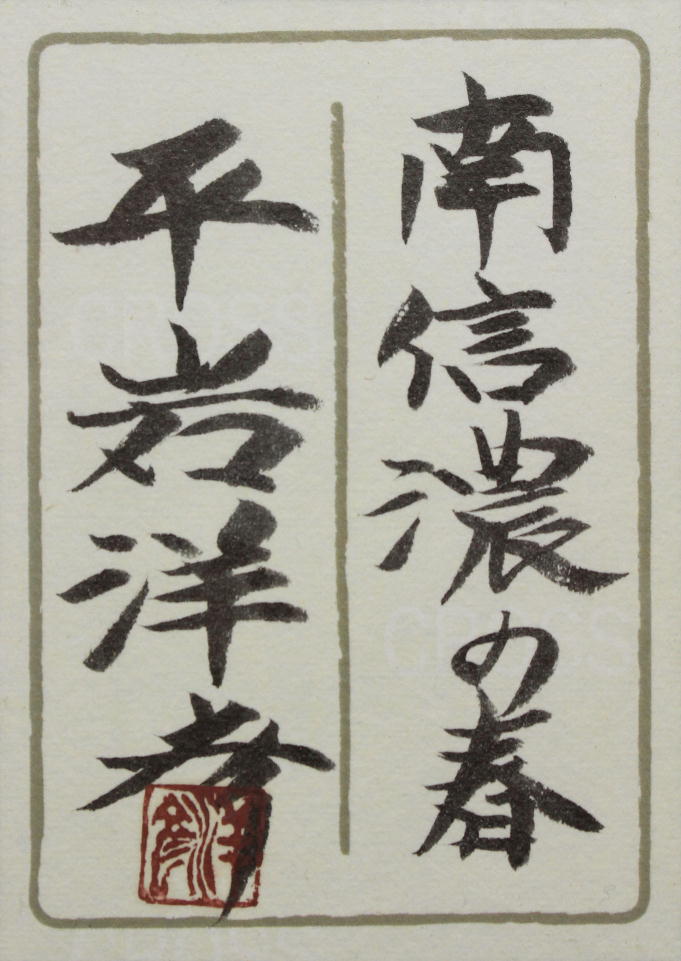 南信濃の春
平岩洋彦